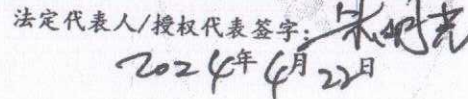 法定代表人/授权代表签字:
2024年4月22日